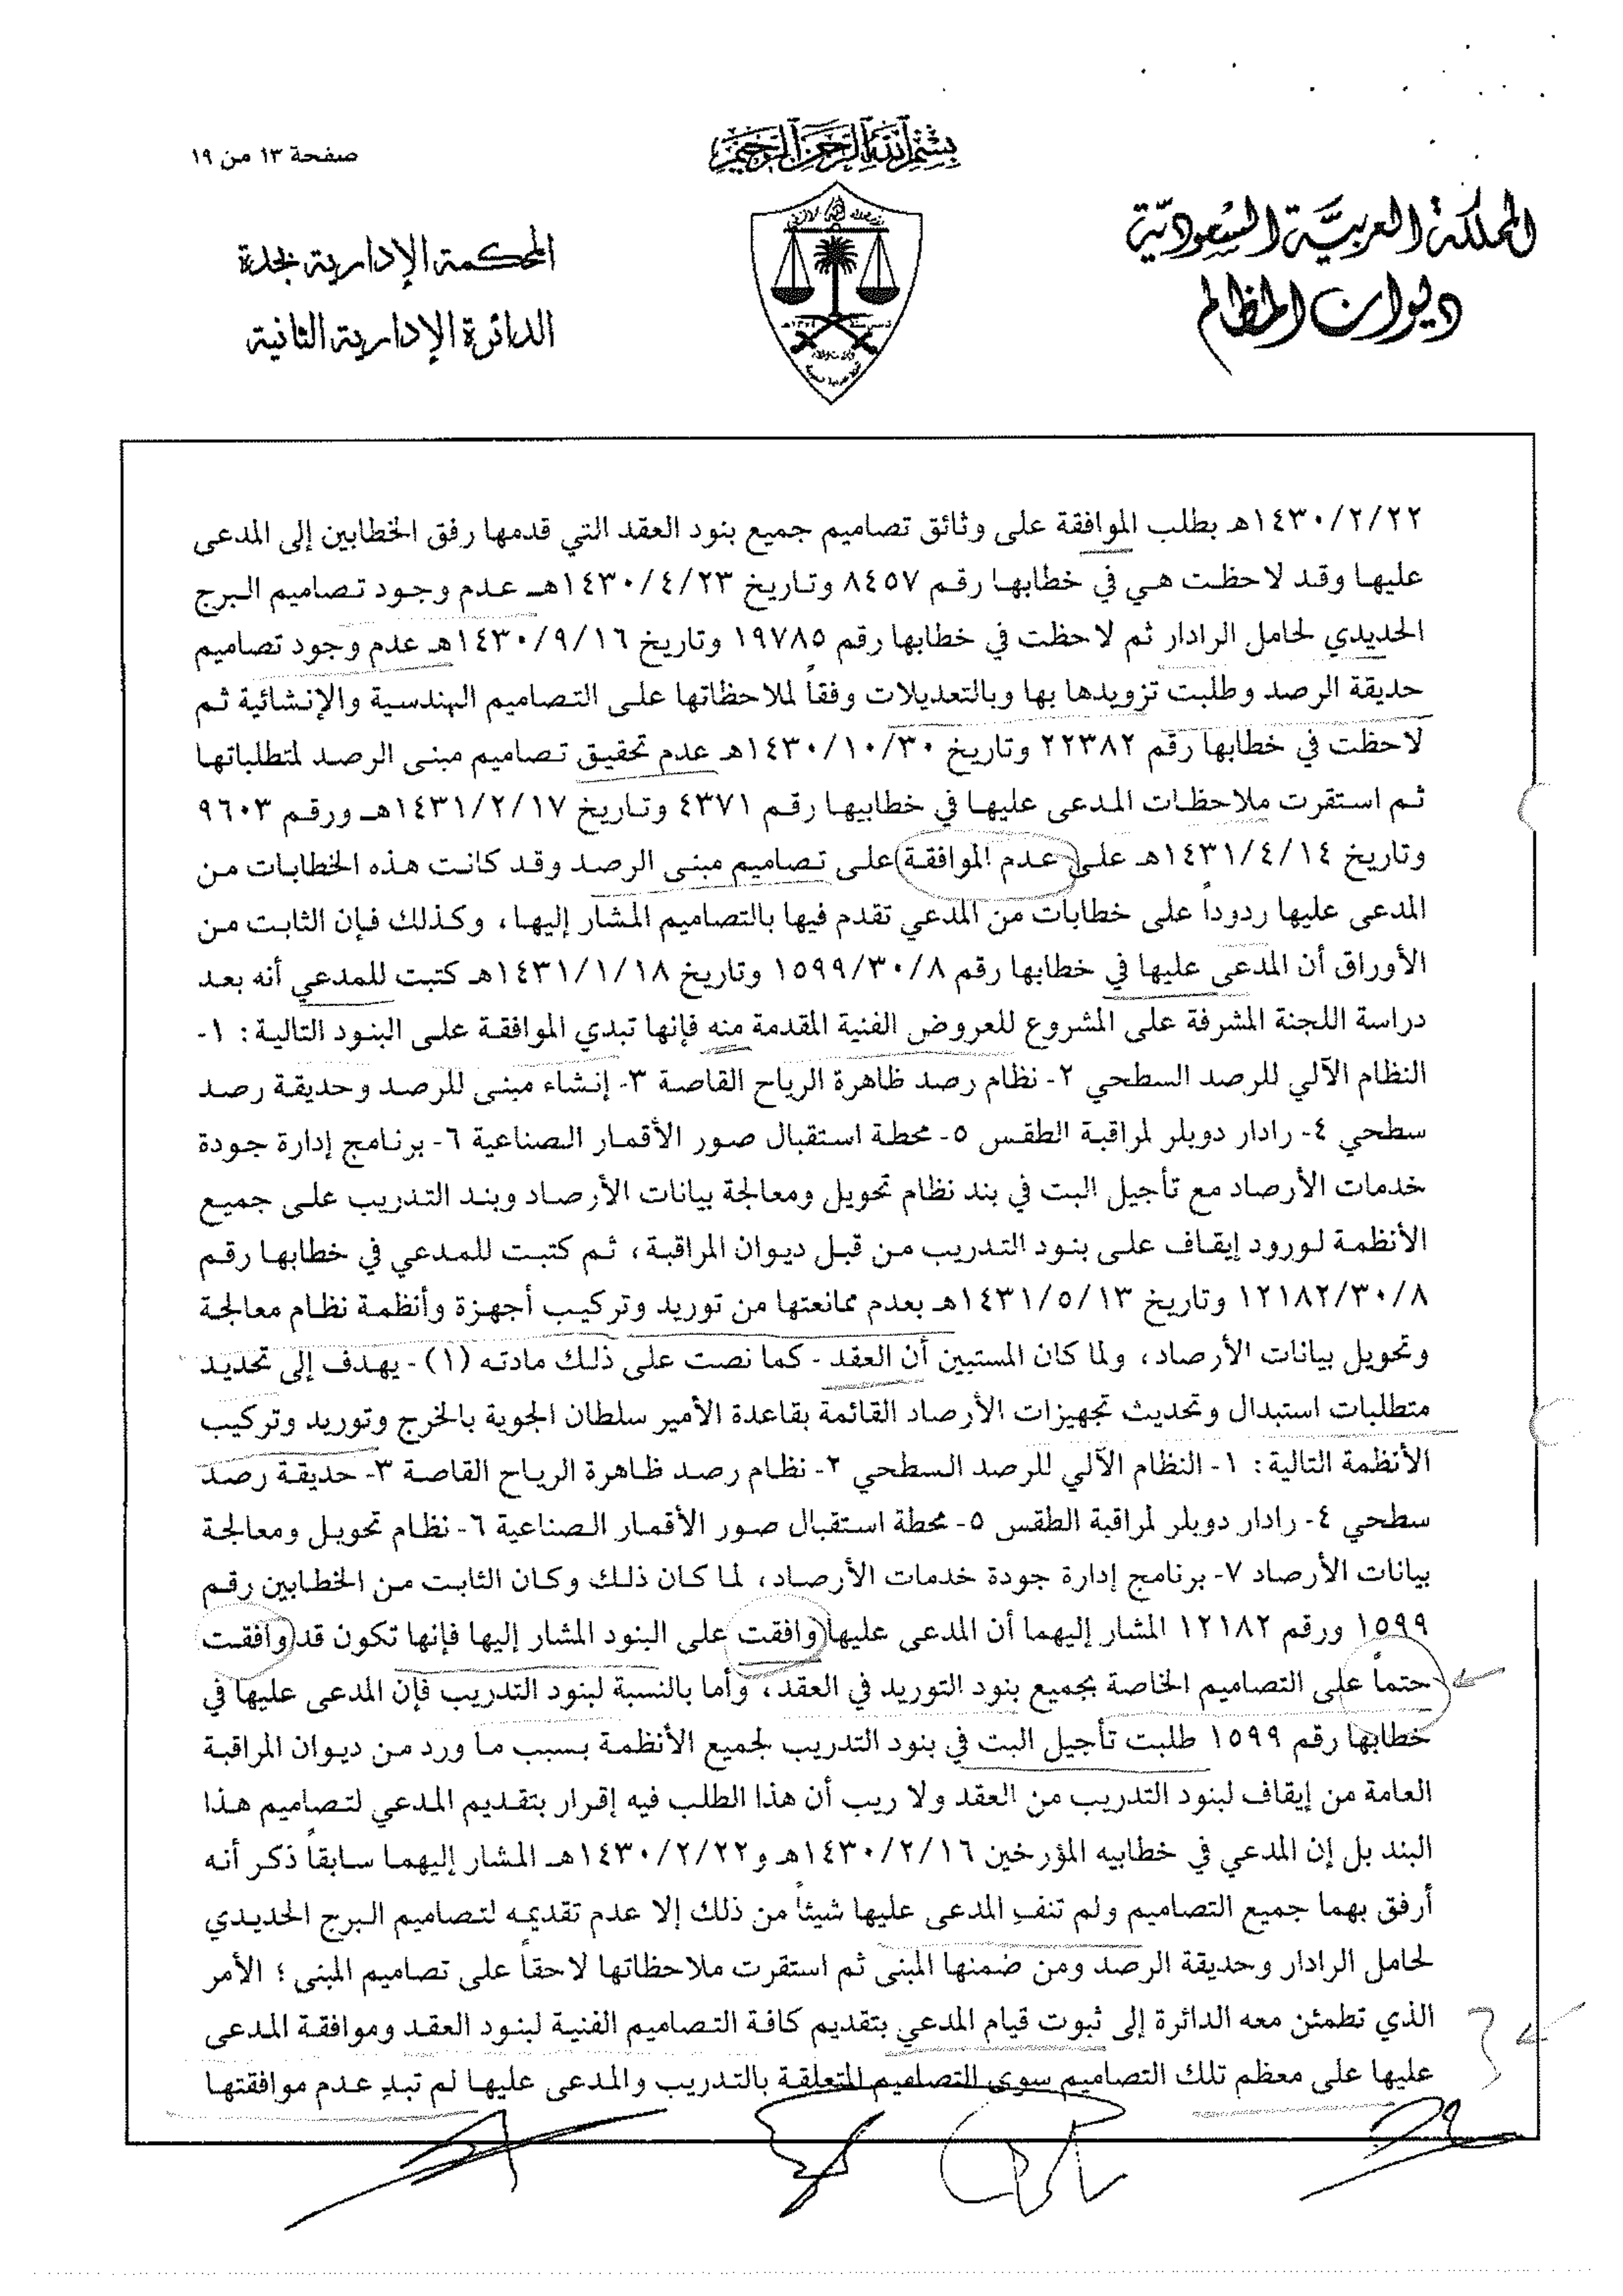 صفحة ١٣ من ١٩
بسم الله الرحمن الرحيم
المملكة العربية السعودية
ديوان المظالم
المحكمة الإدارية بجدة
الدائرة الإدارية الثانية
١٤٣٠/٢/٢٢هـ بطلب الموافقة على وثائق تصاميم جميع بنود العقد التي قدمها رفق الخطابين إلى المدعى
عليها وقد لاحظت هي في خطابها رقم ٨٤٥٧ وتاريخ ١٤٣٠/٤/٢٣هـ عدم وجود تصاميم البرج
الحديدي لحامل الرادار ثم لاحظت في خطابها رقم ١٩٧٨٥ وتاريخ ١٤٣٠/٩/١٦هـ عدم وجود تصاميم
حديقة الرصد وطلبت تزويدها بها وبالتعديلات وفقاً لملاحظاتها على التصاميم الهندسية والإنشائية ثم
لاحظت في خطابها رقم ٢٢٣٨٢ وتاريخ ١٤٣٠/١٠/٣٠هـ عدم تحقيق تصاميم مبنى الرصد لمتطلباتها
ثم استقرت ملاحظات المدعى عليها في خطابيها رقم ٤٣٧١ وتاريخ ١٤٣١/٢/١٧هـ ورقم ٩٦٠٣
وتاريخ ١٤٣١/٤/١٤هـ على عدم الموافقة على تصاميم مبنى الرصد وقد كانت هذه الخطابات من
المدعى عليها ردوداً على خطابات من المدعي تقدم فيها بالتصاميم المشار إليها، وكذلك فإن الثابت من
الأوراق أن المدعى عليها في خطابها رقم ١٥٩٩/٣٠/٨ وتاريخ ١٤٣١/١/١٨هـ كتبت للمدعي أنه بعد
دراسة اللجنة المشرفة على المشروع للعروض الفنية المقدمة منه فإنها تبدي الموافقة على البنود التالية: ١-
النظام الآلي للرصد السطحي ٢- نظام رصد ظاهرة الرياح القاصة ٣- إنشاء مبنى للرصد وحديقة رصد
سطحي ٤- رادار دوبلر لمراقبة الطقس ٥- محطة استقبال صور الأقمار الصناعية ٦- برنامج إدارة جودة
خدمات الأرصاد مع تأجيل البت في بند نظام تحويل ومعالجة بيانات الأرصاد وبند التدريب على جميع
الأنظمة لورود إيقاف على بنود التدريب من قبل ديوان المراقبة، ثم كتبت للمدعي في خطابها رقم
١٢١٨٢/٣٠/٨ وتاريخ ١٤٣١/٥/١٣هـ بعدم ممانعتها من توريد وتركيب أجهزة وأنظمة نظام معالجة
وتحويل بيانات الأرصاد، ولما كان المستبين أن العقد - كما نصت على ذلك مادته (١) - يهدف إلى تحديد
متطلبات استبدال وتحديث تجهيزات الأرصاد القائمة بقاعدة الأمير سلطان الجوية بالخرج وتوريد وتركيب
الأنظمة التالية: ١- النظام الآلي للرصد السطحي ٢- نظام رصد ظاهرة الرياح القاصة ٣- حديقة رصد
سطحي ٤- رادار دوبلر لمراقبة الطقس ٥- محطة استقبال صور الأقمار الصناعية ٦- نظام تحويل ومعالجة
بيانات الأرصاد ٧- برنامج إدارة جودة خدمات الأرصاد، لما كان ذلك وكان الثابت من الخطابين رقم
١٥٩٩ ورقم ١٢١٨٢ المشار إليهما أن المدعى عليها وافقت على البنود المشار إليها فإنها تكون قد وافقت
حتماً على التصاميم الخاصة بجميع بنود التوريد في العقد، وأما بالنسبة لبنود التدريب فإن المدعى عليها في
خطابها رقم ١٥٩٩ طلبت تأجيل البت في بنود التدريب لجميع الأنظمة بسبب ما ورد من ديوان المراقبة
العامة من إيقاف لبنود التدريب من العقد ولا ريب أن هذا الطلب فيه إقرار بتقديم المدعي لتصاميم هذا
البند بل إن المدعي في خطابيه المؤرخين ١٤٣٠/٢/١٦هـ و١٤٣٠/٢/٢٢هـ المشار إليهما سابقاً ذكر أنه
أرفق بهما جميع التصاميم ولم تنفِ المدعى عليها شيئاً من ذلك إلا عدم تقديمه لتصاميم البرج الحديدي
لحامل الرادار وحديقة الرصد ومن ضمنها المبنى ثم استقرت ملاحظاتها لاحقاً على تصاميم المبنى؛ الأمر
الذي تطمئن معه الدائرة إلى ثبوت قيام المدعي بتقديم كافة التصاميم الفنية لبنود العقد وموافقة المدعى
عليها على معظم تلك التصاميم سوى التصاميم المتعلقة بالتدريب والمدعى عليها لم تبدِ عدم موافقتها